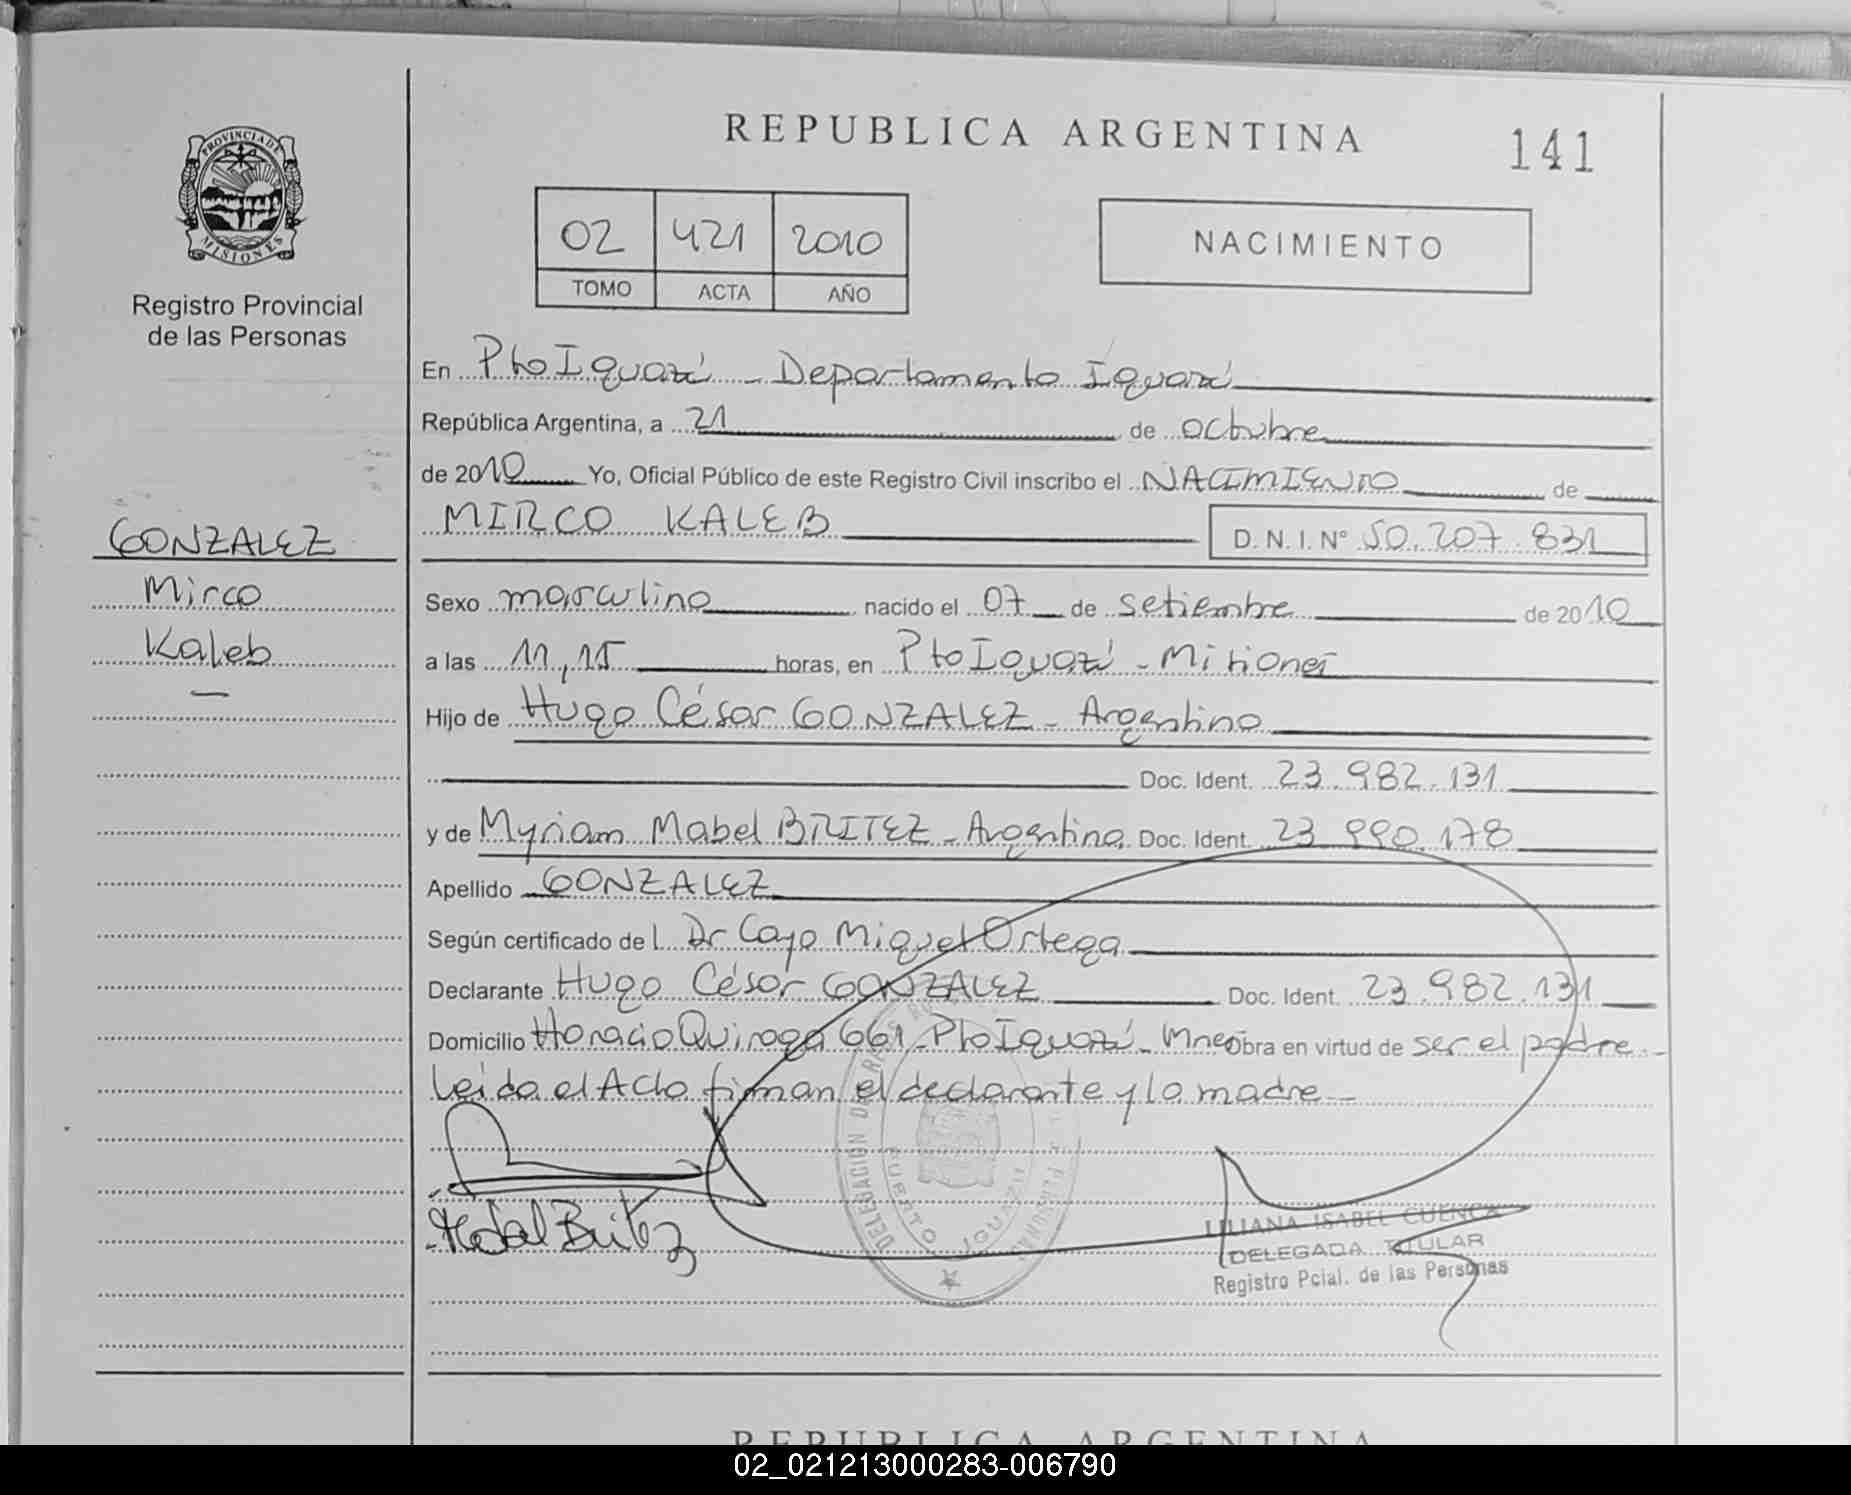 REPUBLICA ARGENTINA
141
PROVINCIA DE
MISIONES
Registro Provincial
de las Personas
02 421 2010
TOMO ACTA AÑO
NACIMIENTO
En Pto Iguazú - Departamento Iguazú
República Argentina, a 21 de octubre
de 2010 Yo, Oficial Público de este Registro Civil inscribo el NACIMIENTO de
MIRCO KALEB D.N.I. Nº 50.207.831
GONZALEZ
Mirco
Kaleb
Sexo masculino nacido el 07 de setiembre de 2010
a las 11,15 horas, en Pto Iguazú - Misiones
Hijo de Hugo César GONZALEZ - Argentino
Doc. Ident. 23.982.131
y de Myriam Mabel BRITEZ - Argentina Doc. Ident. 23.990.178
Apellido GONZALEZ
Según certificado del Dr Cayo Miguel Ortega
Declarante Hugo César GONZALEZ Doc. Ident. 23.982.131
Domicilio Horacio Quiroga 661 - Pto Iguazú - Mnes Obra en virtud de ser el padre -
Leida el Acta firman el declarante y la madre -
DELEGACION
PUERTO IGUAZU
Britez
LILIANA ISABEL CUENCA
DELEGADA TITULAR
Registro Pcial. de las Personas
REPUBLICA ARGENTINA
02_021213000283-006790